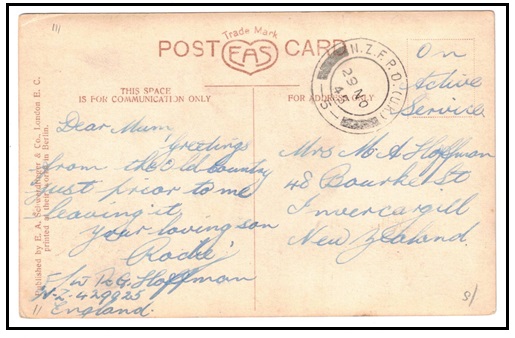 Trade Mark
EAS
POST CARD
THIS SPACE
IS FOR COMMUNICATION ONLY
FOR ADDRESS ONLY
N.Z.F.P.O. (U.K.)
29 NO
45
5
On
Active
Service
Dear Mum
Greetings
from the old country
just prior to me
leaving it
Your loving son
Rode
R. G. Hoffman
N.Z. 429925
England.
Mrs M. A. Hoffman
48 Bourke St
Invercargill
New Zealand.
Published by E. A. & Co., London E. C.
printed at their works in Berlin.